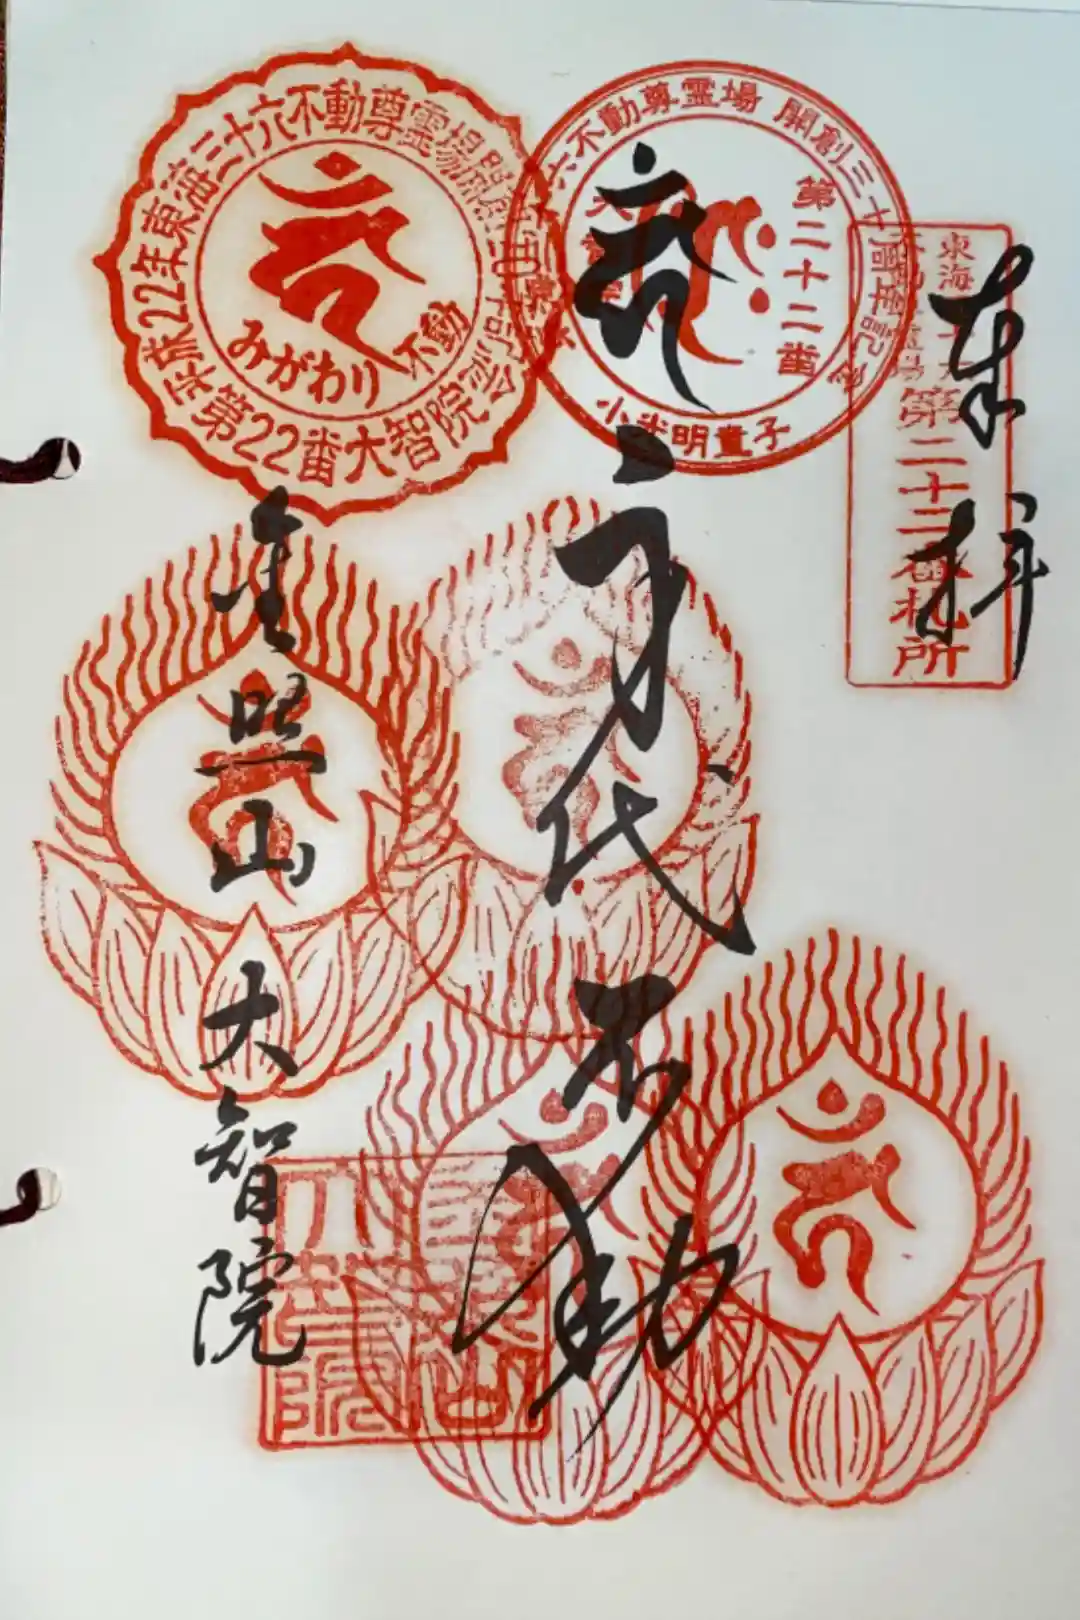 奉拝
東海三十六
不動尊霊場
第二十二番札所
六不動尊霊場 開創三十周年記念
第二十二番
小光明童子
身代不動
平成22年東海三十六不動尊霊場開創
第22番大智院
みがわり不動
金照山 大智院